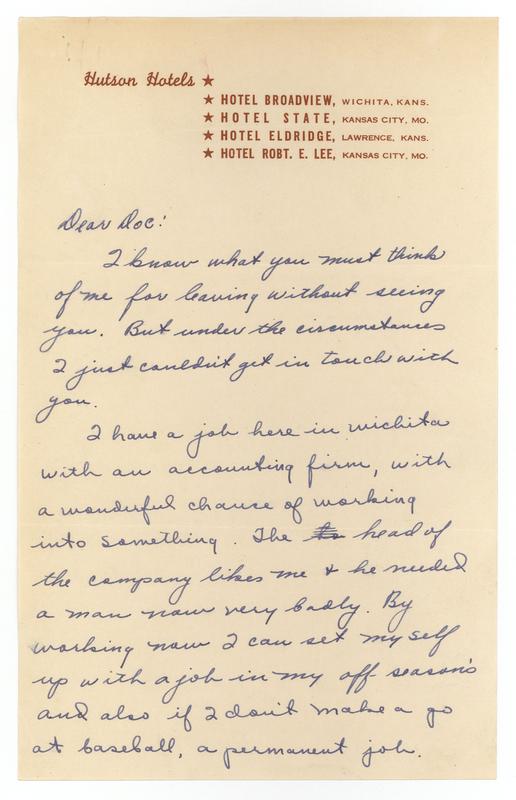 Hutson Hotels ★
★ HOTEL BROADVIEW, WICHITA, KANS.
★ HOTEL STATE, KANSAS CITY, MO.
★ HOTEL ELDRIDGE, LAWRENCE, KANS.
★ HOTEL ROBT. E. LEE, KANSAS CITY, MO.
Dear Doc:
I know what you must think
of me for leaving without seeing
you. But under the circumstances
I just couldn't get in touch with
you.
I have a job here in Wichita
with an accounting firm, with
a wonderful chance of working
into something. The head of
the company likes me + he needed
a man now very badly. By
working now I can set myself
up with a job in my off season's
and also if I don't make a go
at baseball, a permanent job.